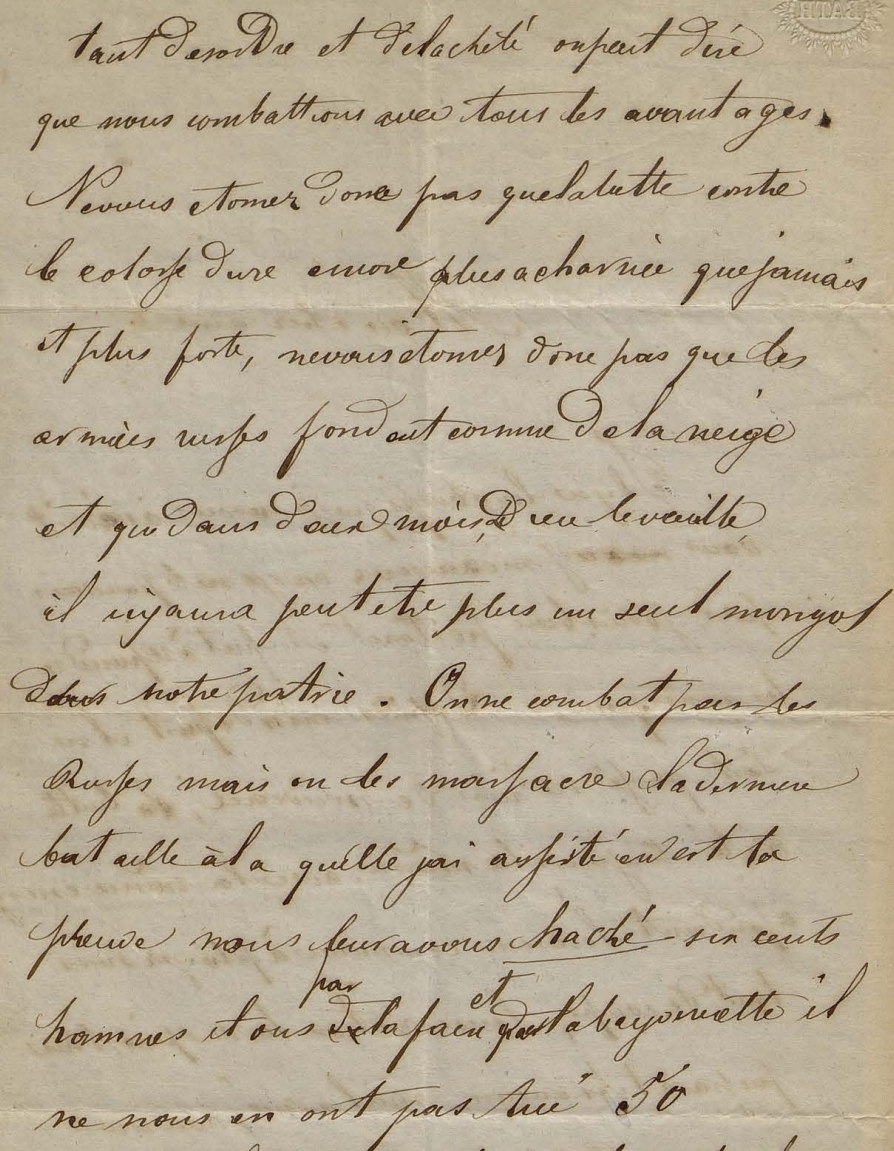 BATH
tant desordre et delacheté onpeut dire
que nous combattions avec tous les avantages.
Nevous etonnez donc pas quelalutte contre
le colosse dure encore plus acharnée que jamais
et plus forte, nevous etonnez donc pas que les
armées russes fondent comme de la neige
et que dans deux mois, Dieu leveuille,
il n'yaura peut etre plus un seul mongol
dans notre patrie. On ne combat pas les
Russes mais on les massacre Laderniere
bataille àla quelle jai assisté en est la
preuve nous leur avons haché six cents
hommes et ous par la faux et la bayonnette il
ne nous en ont pas tué 50